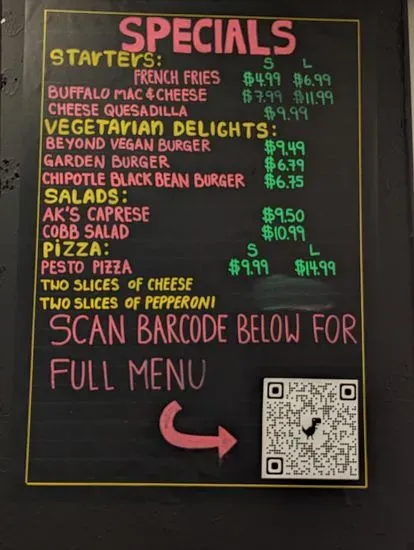 SPECIALS
STARTERS: S L
FRENCH FRIES $4.99 $6.99
BUFFALO MAC & CHEESE $7.99 $11.99
CHEESE QUESADILLA $9.99
VEGETARIAN DELIGHTS:
BEYOND VEGAN BURGER $9.49
GARDEN BURGER $6.79
CHIPOTLE BLACK BEAN BURGER $6.75
SALADS:
AK'S CAPRESE $9.50
COBB SALAD $10.99
PIZZA: S L
PESTO PIZZA $9.99 $14.99
TWO SLICES OF CHEESE
TWO SLICES OF PEPPERONI
SCAN BARCODE BELOW FOR
FULL MENU